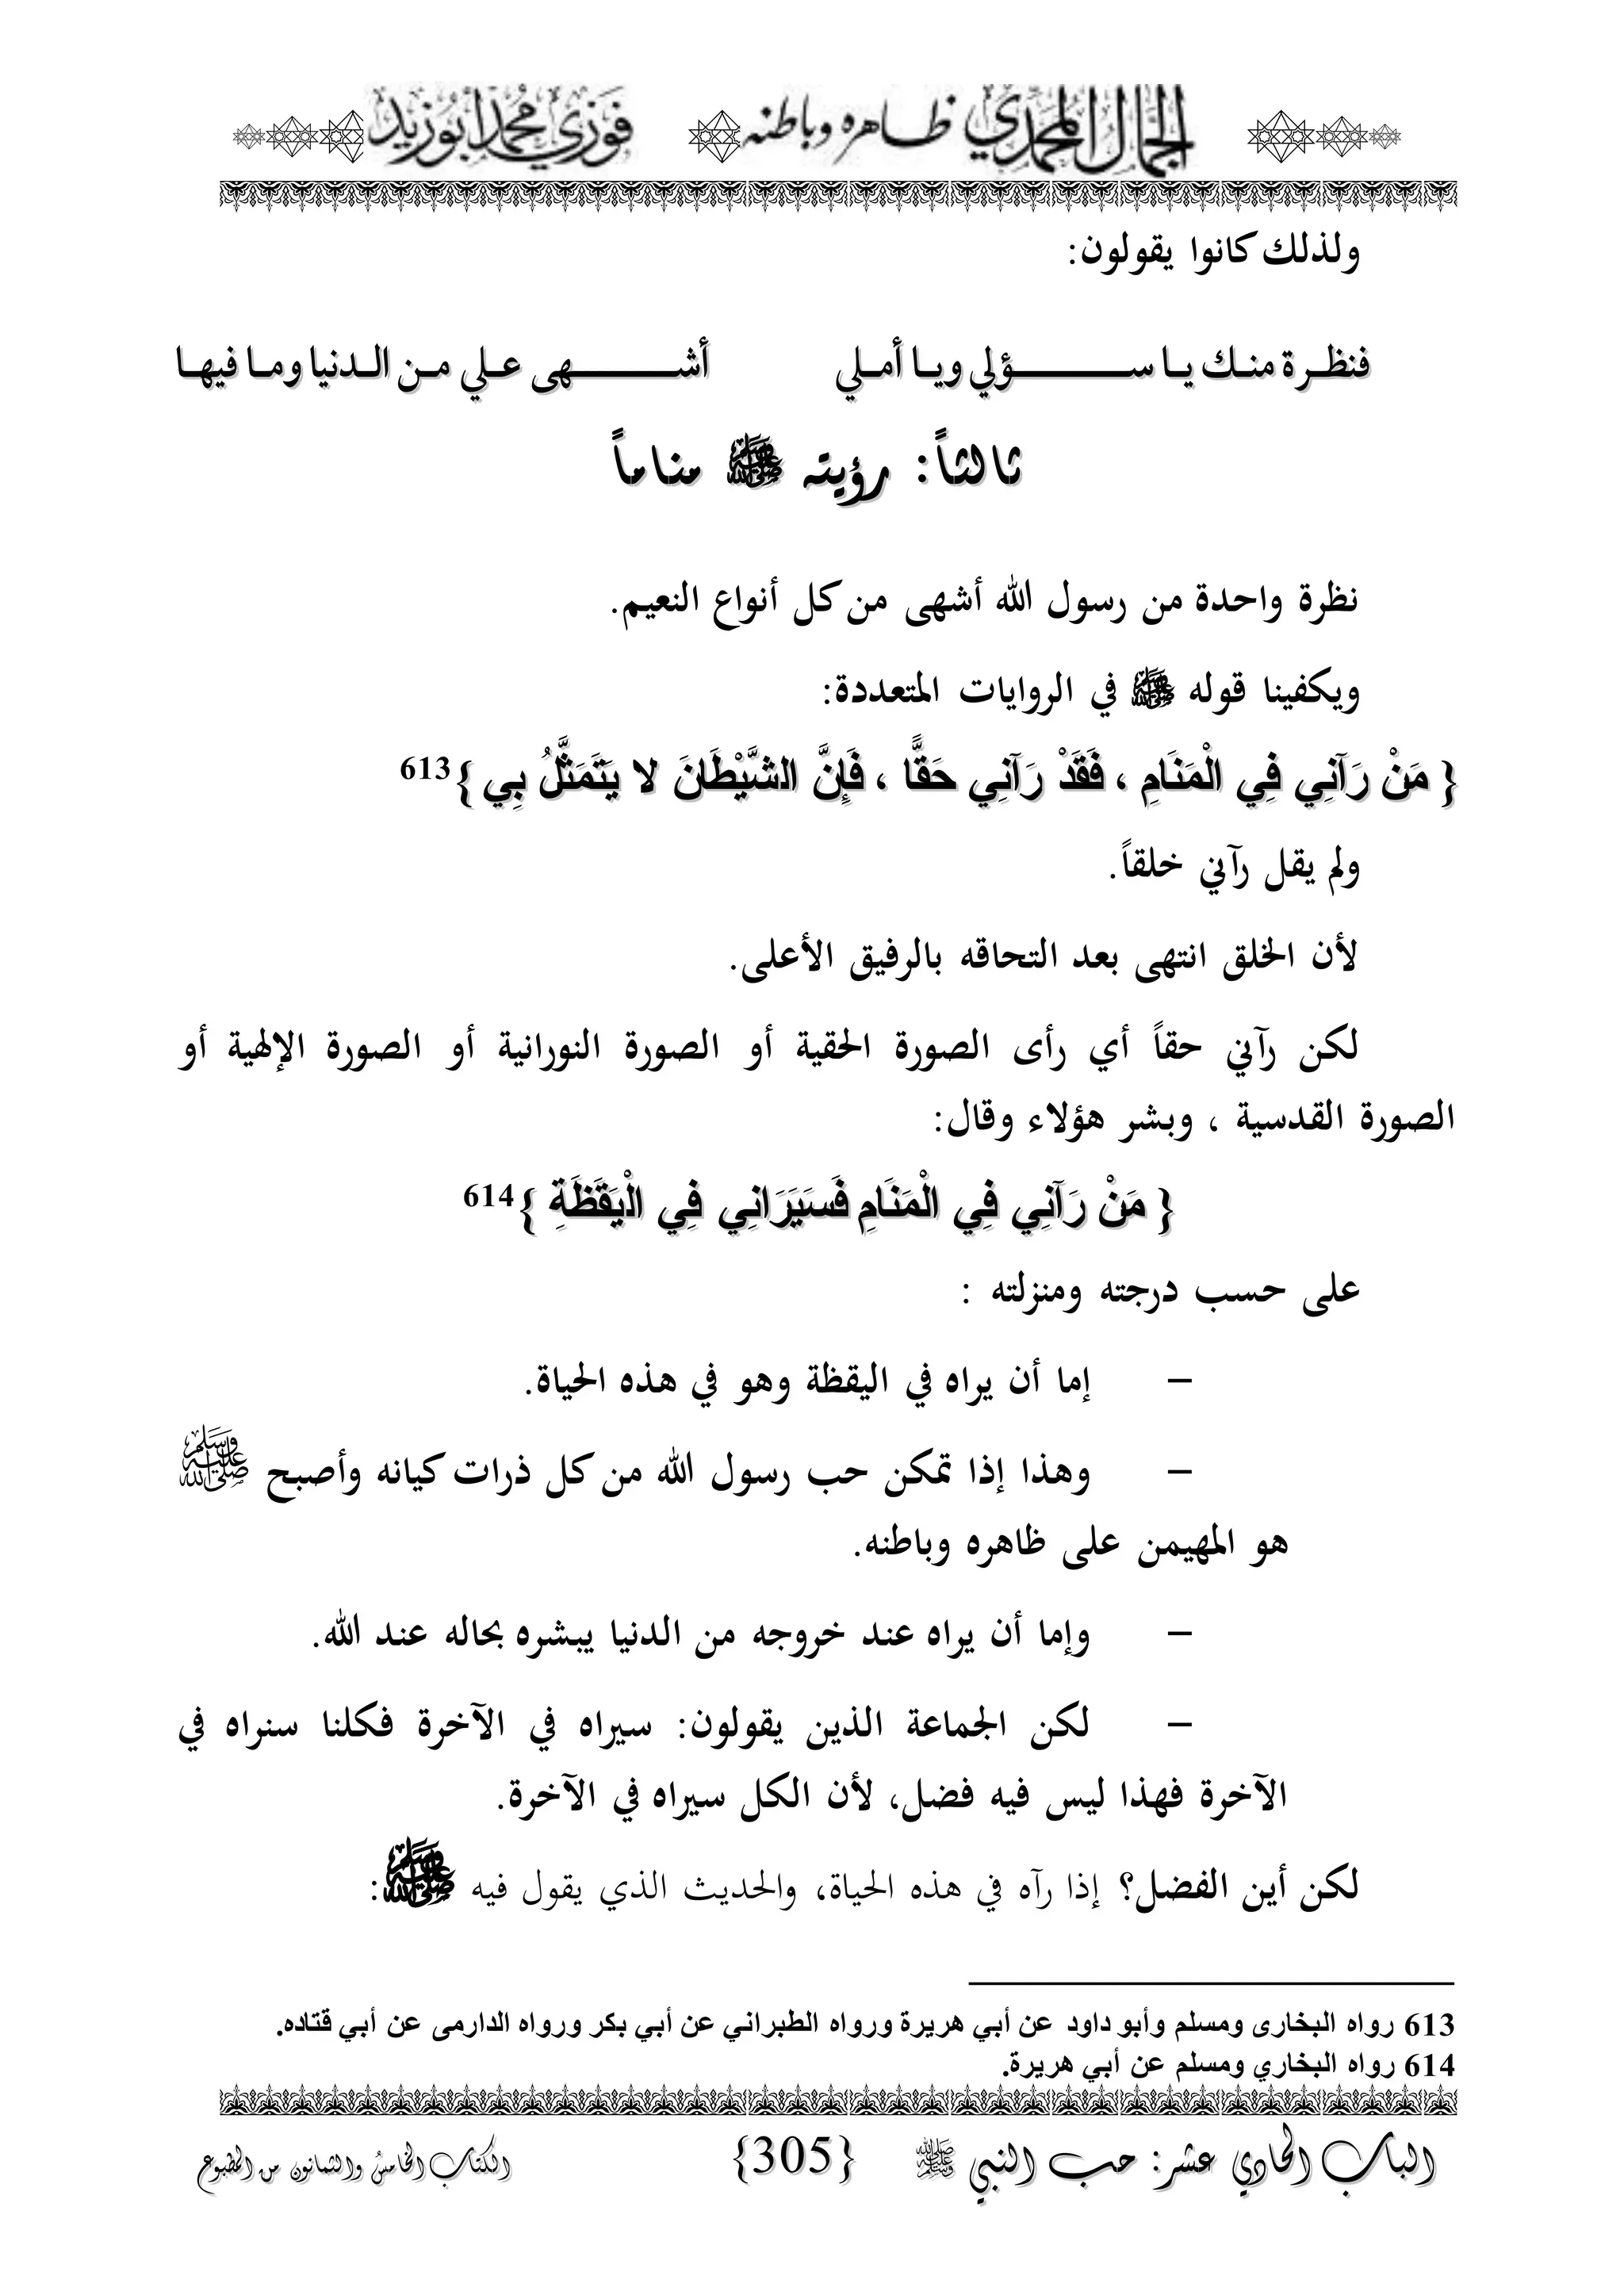 الجمال المحمدي ظاهره وباطنه فوزي محمد أبوزيد
ولذلك كانوا يقولون:
فنظرة منك يا سؤلي ويا أملي أشهى علي من الدنيا وما فيها
ثالثاً: رؤيته ﷺ مناماً
نظرة واحدة من رسول الله أشهى من كل أنواع النعيم.
ويكفينا قوله ﷺ في الروايات المتعددة:
{ مَنْ رَآنِي فِي الْمَنَامِ ، فَقَدْ رَآنِي حَقًّا ، فَإِنَّ الشَّيْطَانَ لا يَتَمَثَّلُ بِي }613
ولم يقل رآني خلقاً.
لأن الخلق انتهى بعد التحاقه بالرفيق الأعلى.
لكن رآني حقاً أي رأى الصورة الحقية أو الصورة النورانية أو الصورة الإلهية أو
الصورة القدسية ، وبشر هؤلاء وقال:
{ مَنْ رَآنِي فِي الْمَنَامِ فَسَيَرَانِي فِي الْيَقَظَةِ }614
على حسب درجته ومنزلته :
– إما أن يراه في اليقظة وهو في هذه الحياة.
– وهذا إذا تمكن حب رسول الله من كل ذرات كيانه وأصبح ﷺ
هو المهيمن على ظاهره وباطنه.
– وإما أن يراه عند خروجه من الدنيا يبشره بحاله عند الله.
– لكن الجماعة الذين يقولون: سيراه في الآخرة فكلنا سنراه في
الآخرة فهذا ليس فيه فضل، لأن الكل سيراه في الآخرة.
لكن أين الفضل؟ إذا رآه في هذه الحياة، والحديث الذي يقول فيه ﷺ:
613 رواه البخارى ومسلم وأبو داود عن أبي هريرة ورواه الطبراني عن أبي بكر ورواه الدارمى عن أبي قتاده.
614 رواه البخاري ومسلم عن أبي هريرة.
الباب الحادي عشر: حب النبي ﷺ {305} الكتاب الخامس والثمانون من المطبوع